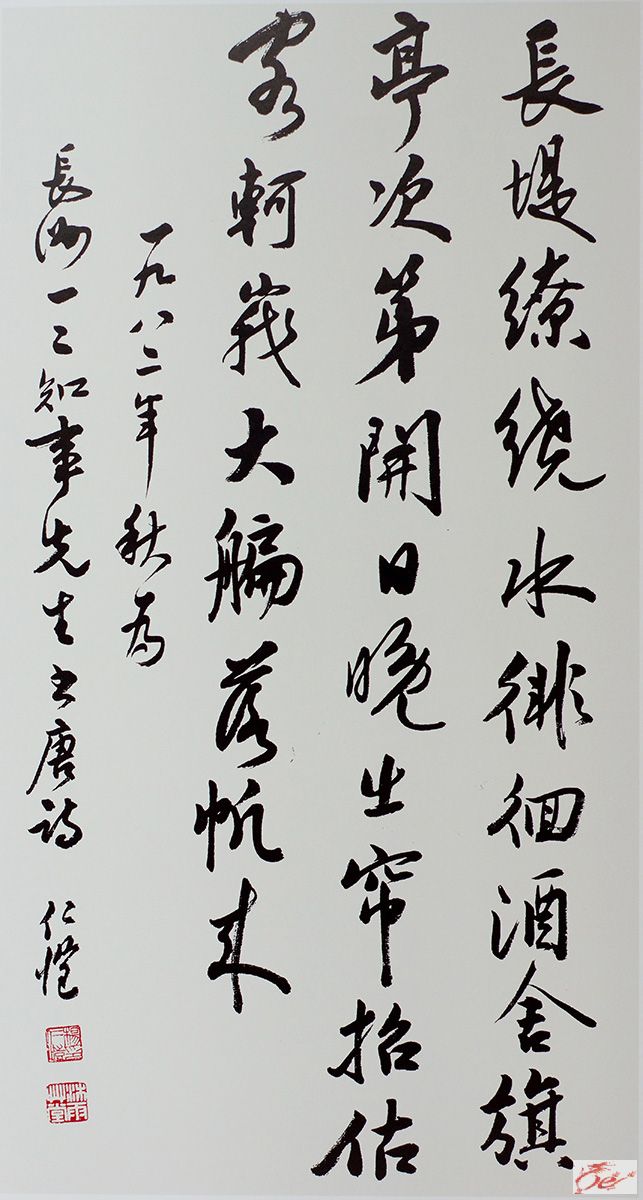 長堤繚繞水徘徊酒舍旗
亭次第開日晚出帘招估
客軻峩大艑落帆来
一九八二年秋為
長洲一二知事先生书唐詩 仁愷